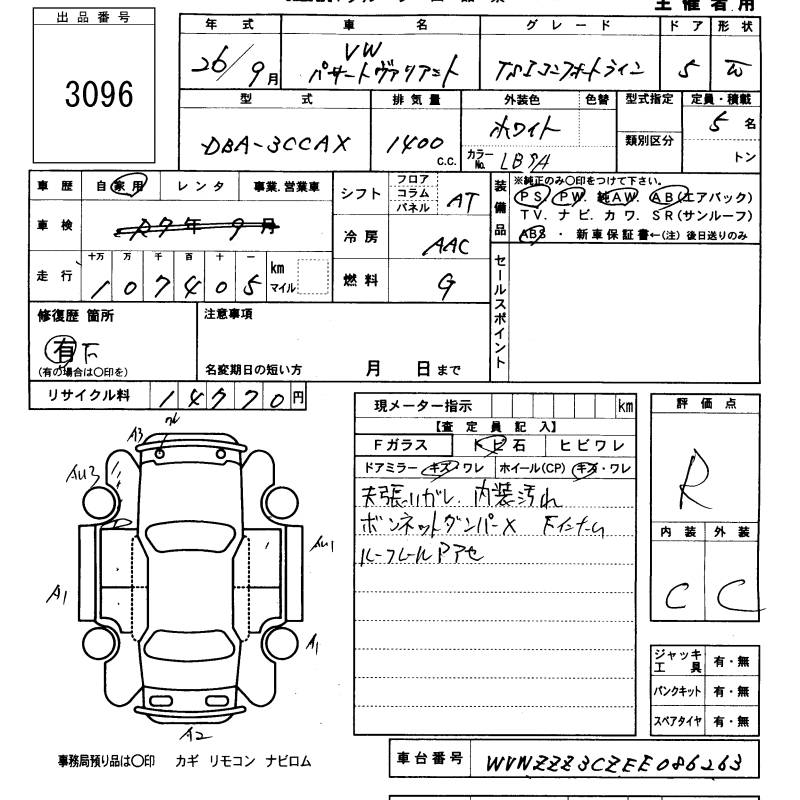 主催者用
出品番号
3096
年式 車名 グレード ドア 形状
26/9月 VW パサートヴァリアント TSIコンフォートライン 5 W
型式 排気量 外装色 色替 型式指定 定員・積載
DBA-3CCAX 1400 c.c. ホワイト 類別区分 5名
カラーNo. LB9A トン
車歴 自家用 レンタ 事業.営業車 シフト フロア コラム パネル AT
装備品 ※純正のみ〇印をつけて下さい。
PS PW. 純AW. AB(エアバック)
TV. ナビ. カワ. SR(サンルーフ)
ABS ・ 新車保証書←(注)後日送りのみ
車検 27年 9月 冷房 AAC
走行 十万 万 千 百 十 一 km マイル
107405
燃料 G
セールスポイント
修復歴 箇所 注意事項
有 下
(有の場合は〇印を) 名変期日の短い方 月 日まで
リサイクル料 14770円
現メーター指示 km
評価点
R
【査定員記入】
Fガラス トビ石 ヒビワレ
ドアミラー キズ・ワレ ホイール(CP) キズ・ワレ
天張ハガレ. 内装汚れ
ボンネットダンパーX Fインナーム
ルーフレールPアセ
内装 外装
C C
A3
AU3
AU1
A1
A1
A2
ジャッキ工具 有・無
パンクキット 有・無
スペアタイヤ 有・無
事務局預り品は〇印 カギ リモコン ナビロム
車台番号 WVWZZZ3CZEE086263